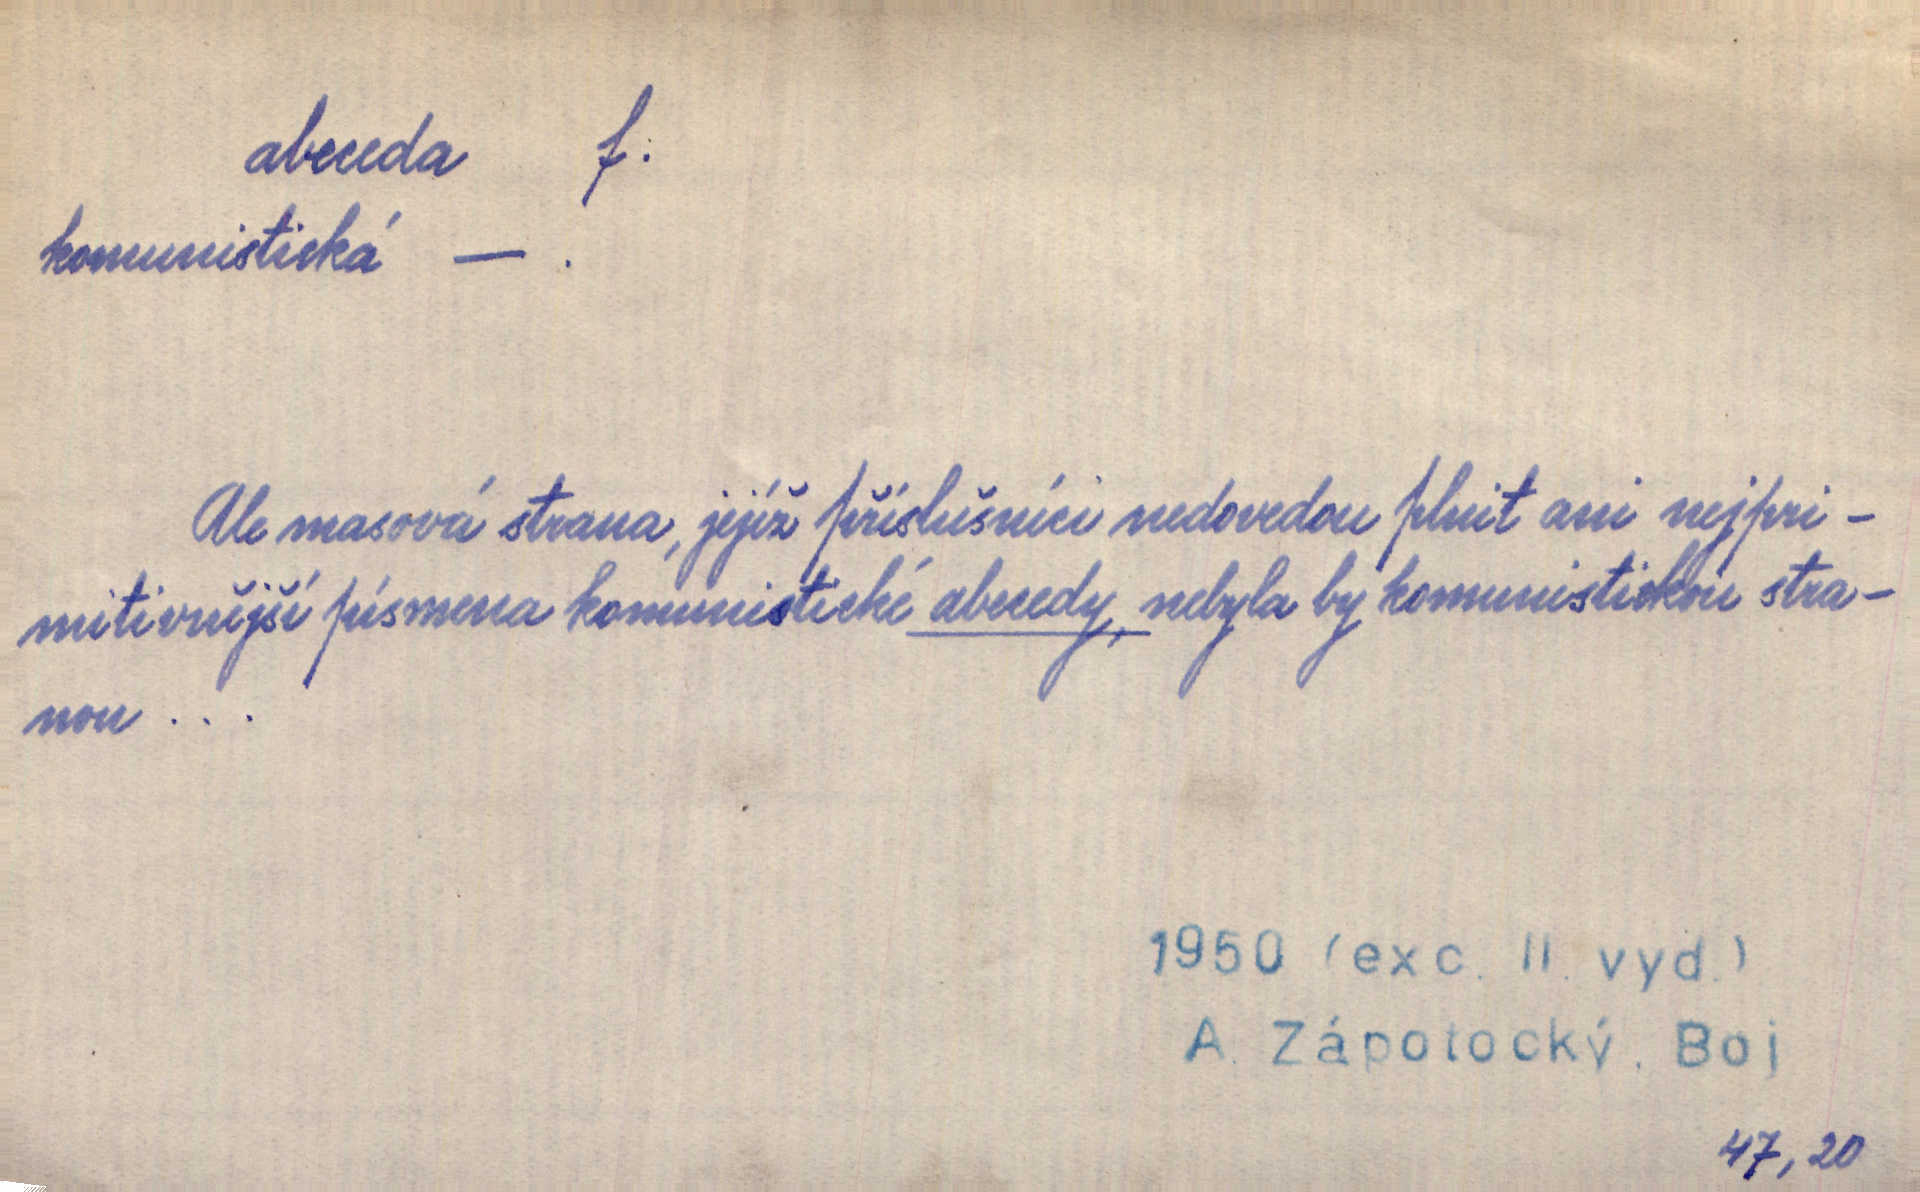 abeceda f.
komunistická — .
Ale masová strana, jejíž příslušníci nedovedou plnit ani nejpri-
mitivnější písmena komunistické abecedy, nebyla by komunistickou stra-
nou . . .
1950 (exc. II. vyd.)
A. Zápotocký, Boj
47, 20